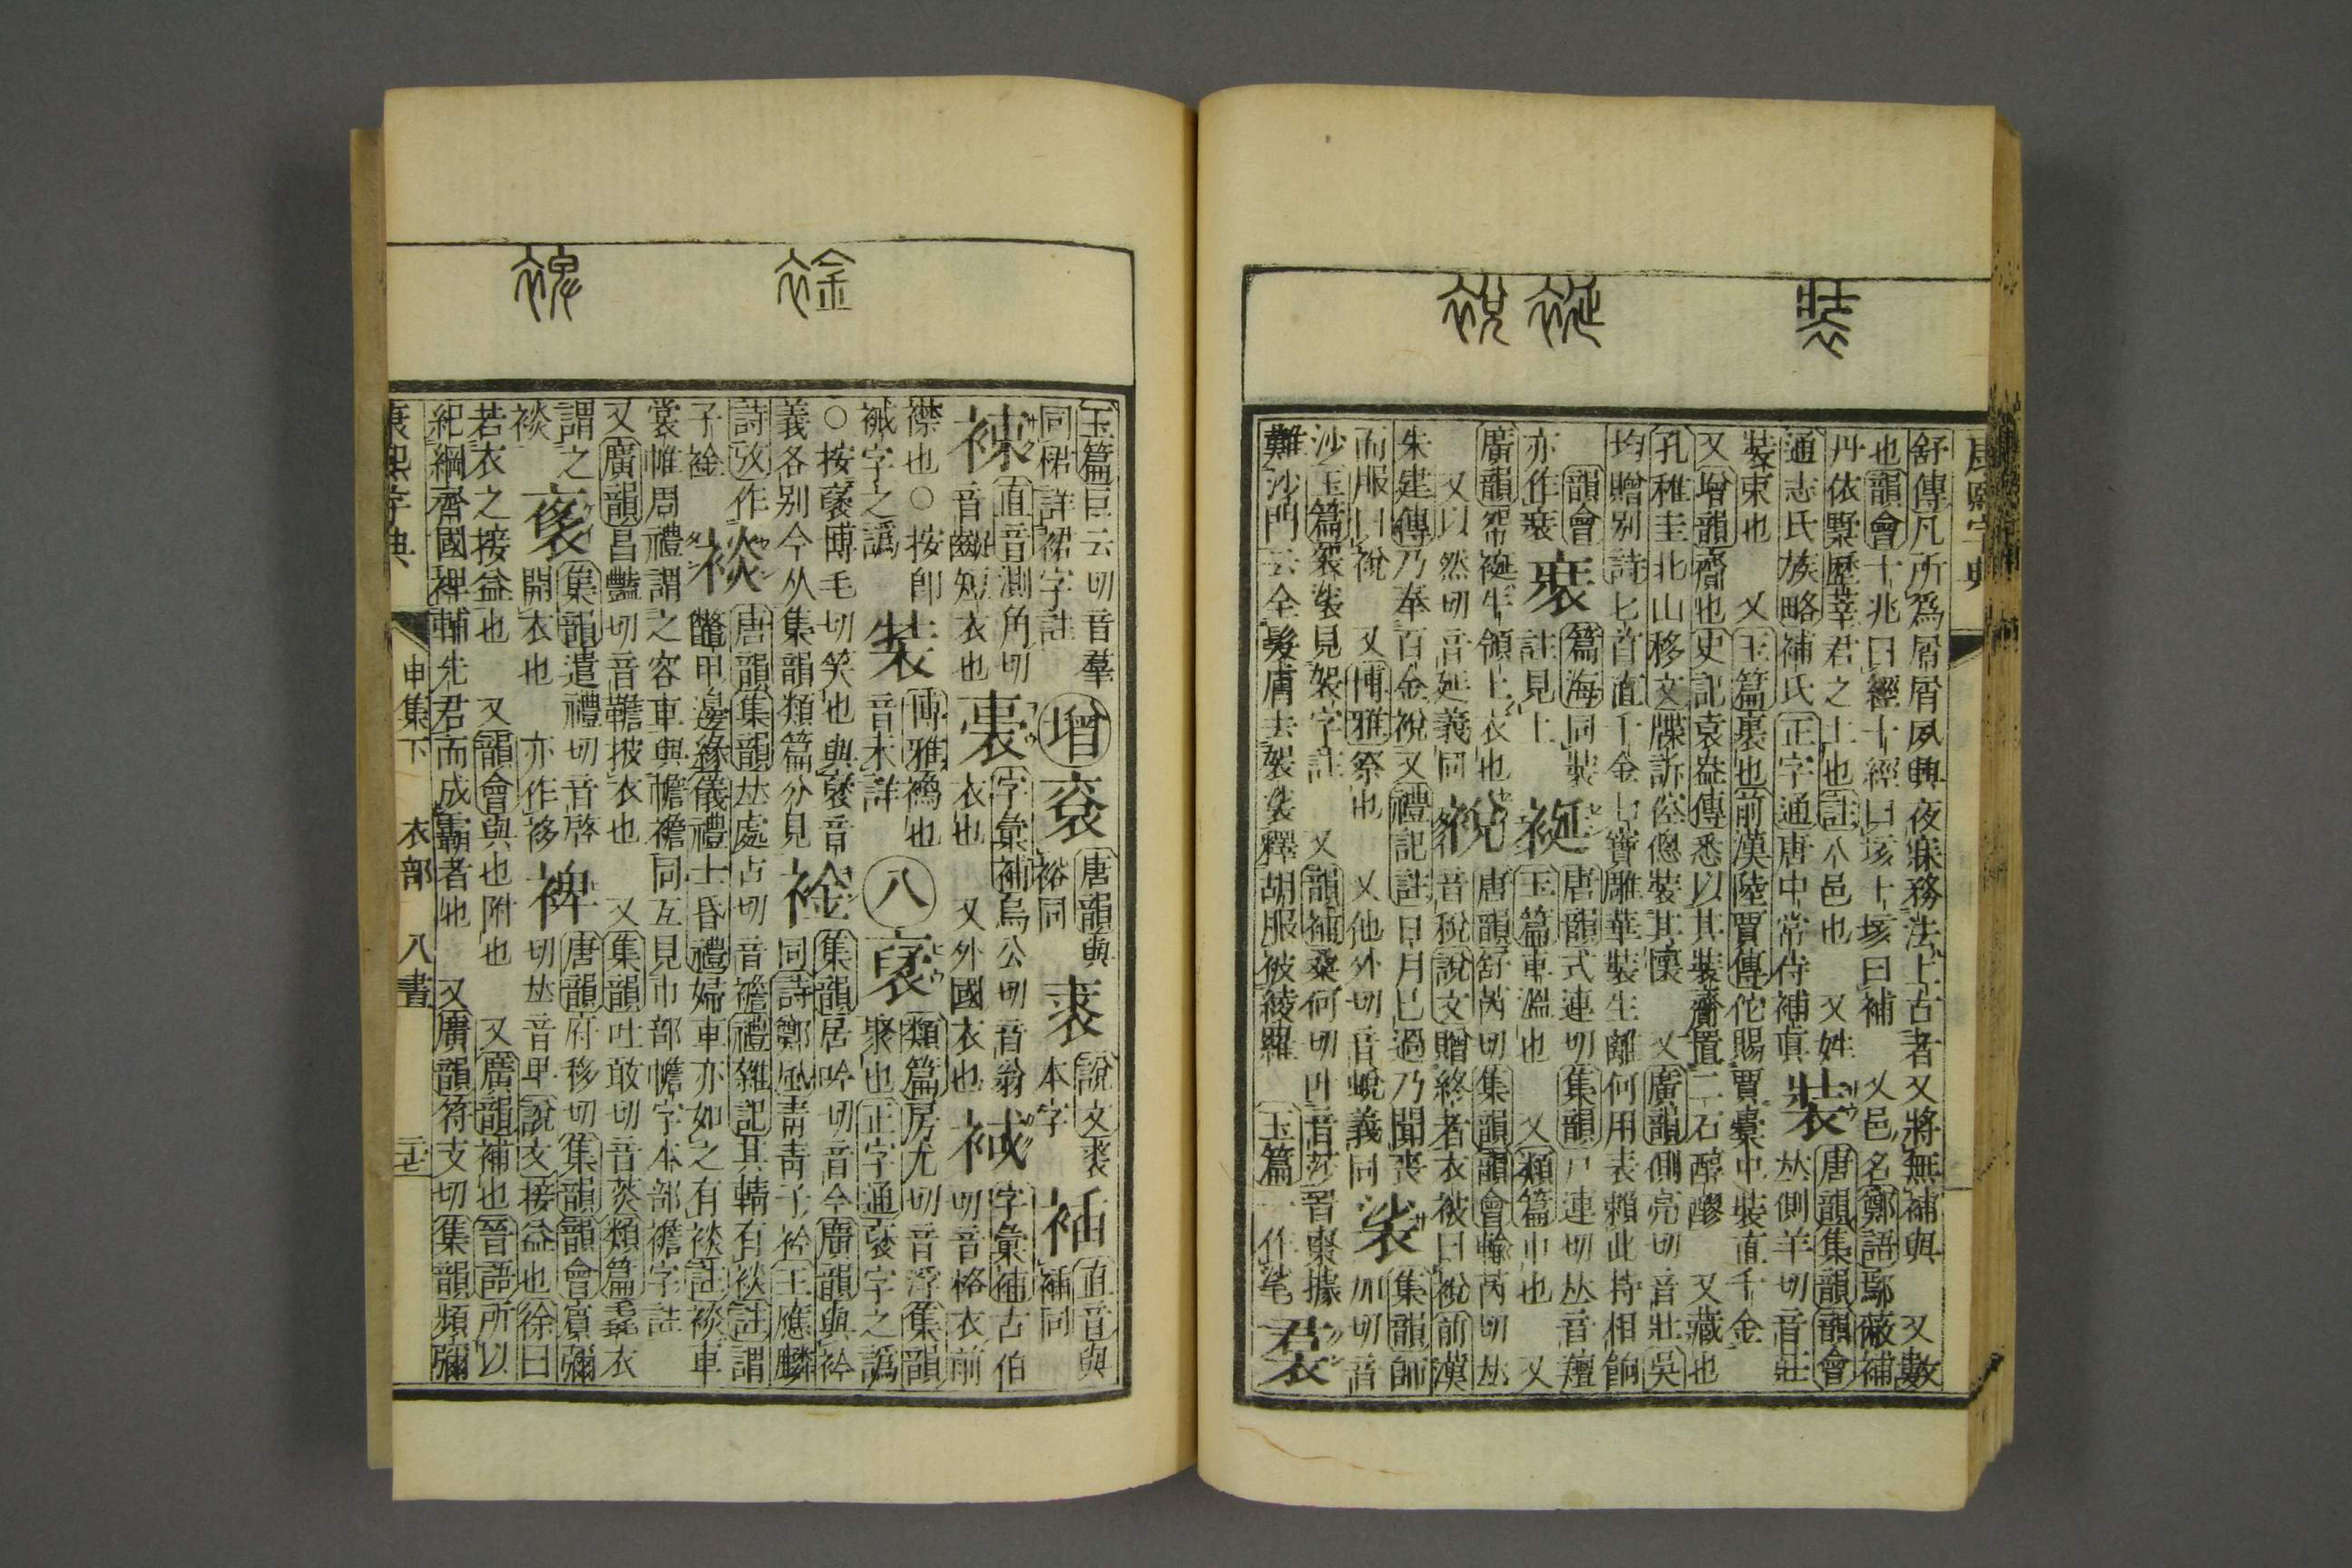 裝 䘰 祱
舒傳凡所爲屑屑夙興夜寐務法上古者又將無補與　又數
也韻會十兆曰經十經曰垓十垓曰補　又邑名鄭語鄢蔽補
丹依䵑歷莘君之土也註八邑也　又姓
通志氏族略補氏正字通唐中常侍補眞
裝唐韻集韻韻會𠀤側羊切音莊
裝束也　又玉篇裹也前漢陸賈傳佗賜賈橐中裝直千金
又增韻齎也史記袁盎傳悉以其裝齎置二石醇醪　又藏也
孔稚圭北山移文牒訴倥傯裝其懷　又廣韻側亮切音壯吳
均贈別詩匕首直千金七寶雕華裝生離何用表賴此持相餉
韻會
亦作裝
篇海同裝
註見上
唐韻式連切集韻尸連切𠀤音羶
玉篇車溫也　又類篇巾也　又
廣韻帑䘰牛領上衣也
又以然切音延義同
唐韻舒芮切集韻韻會輸芮切𠀤
音稅說文贈終者衣被曰祱前漢
朱建傳乃奉百金祱又禮記註日月已過乃聞喪
而服曰祱　又博雅祭也　又他外切音蛻義同
裟
集韻師
加切音
沙玉篇袈裟見袈字註　又韻補桑何切叶音莎曾棗據
難沙門云全髮膚去袈裟釋胡服被綾羅
玉篇
一作㲚
裙
玉篇巨云切音羣
同裠詳裙字註
增
唐韻與
裕同
裘
說文裘
本字
䄂
直音與
補同
直音測角切
音齪短衣也
裏
字彙補烏公切音翁
衣也　又外國衣也
裓
字彙補古伯
切音格衣前
襟也○按卽
裓字之譌
裝
博雅襦也
音未詳
八
裒
類篇房尤切音浮集韻
聚也正字通裦字之譌
○按裦博毛切笑也與裦音
義各別今从集韻類篇分見
裣
集韻居吟切音今廣韻與衿
同詩鄭風靑靑子衿王應麟
詩攷作
子裣
裧
唐韻集韻𠀤處占切音襜禮雜記其輤有裧註謂
鼈甲邊緣儀禮士昏禮婦車亦如之有裧註裧車
裳帷周禮謂之容車與幨襜同互見巾部幨字本部襜字註
又廣韻昌豔切音韂披衣也　又集韻吐敢切音菼類篇毳衣
謂之
裧
集韻遣禮切音啓
開衣也　亦作袳
裨
唐韻府移切集韻韻會賓彌
切𠀤音卑說文接益也徐曰
若衣之接益也　又韻會與也附也　又廣韻補也晉語所以
紀綱齊國裨輔先君而成霸者也　又廣韻符支切集韻頻彌
康熙字典　申集下　衣部　八畫